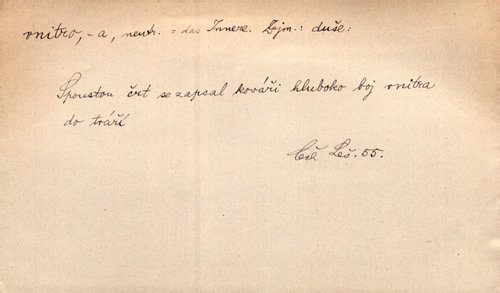 vnitro, -a, neutr. = das Innere. Zejm.: duše:
Spoustou črt se zapsal kováři hluboko boj vnitra
do tváří
Čech Leš. 55.